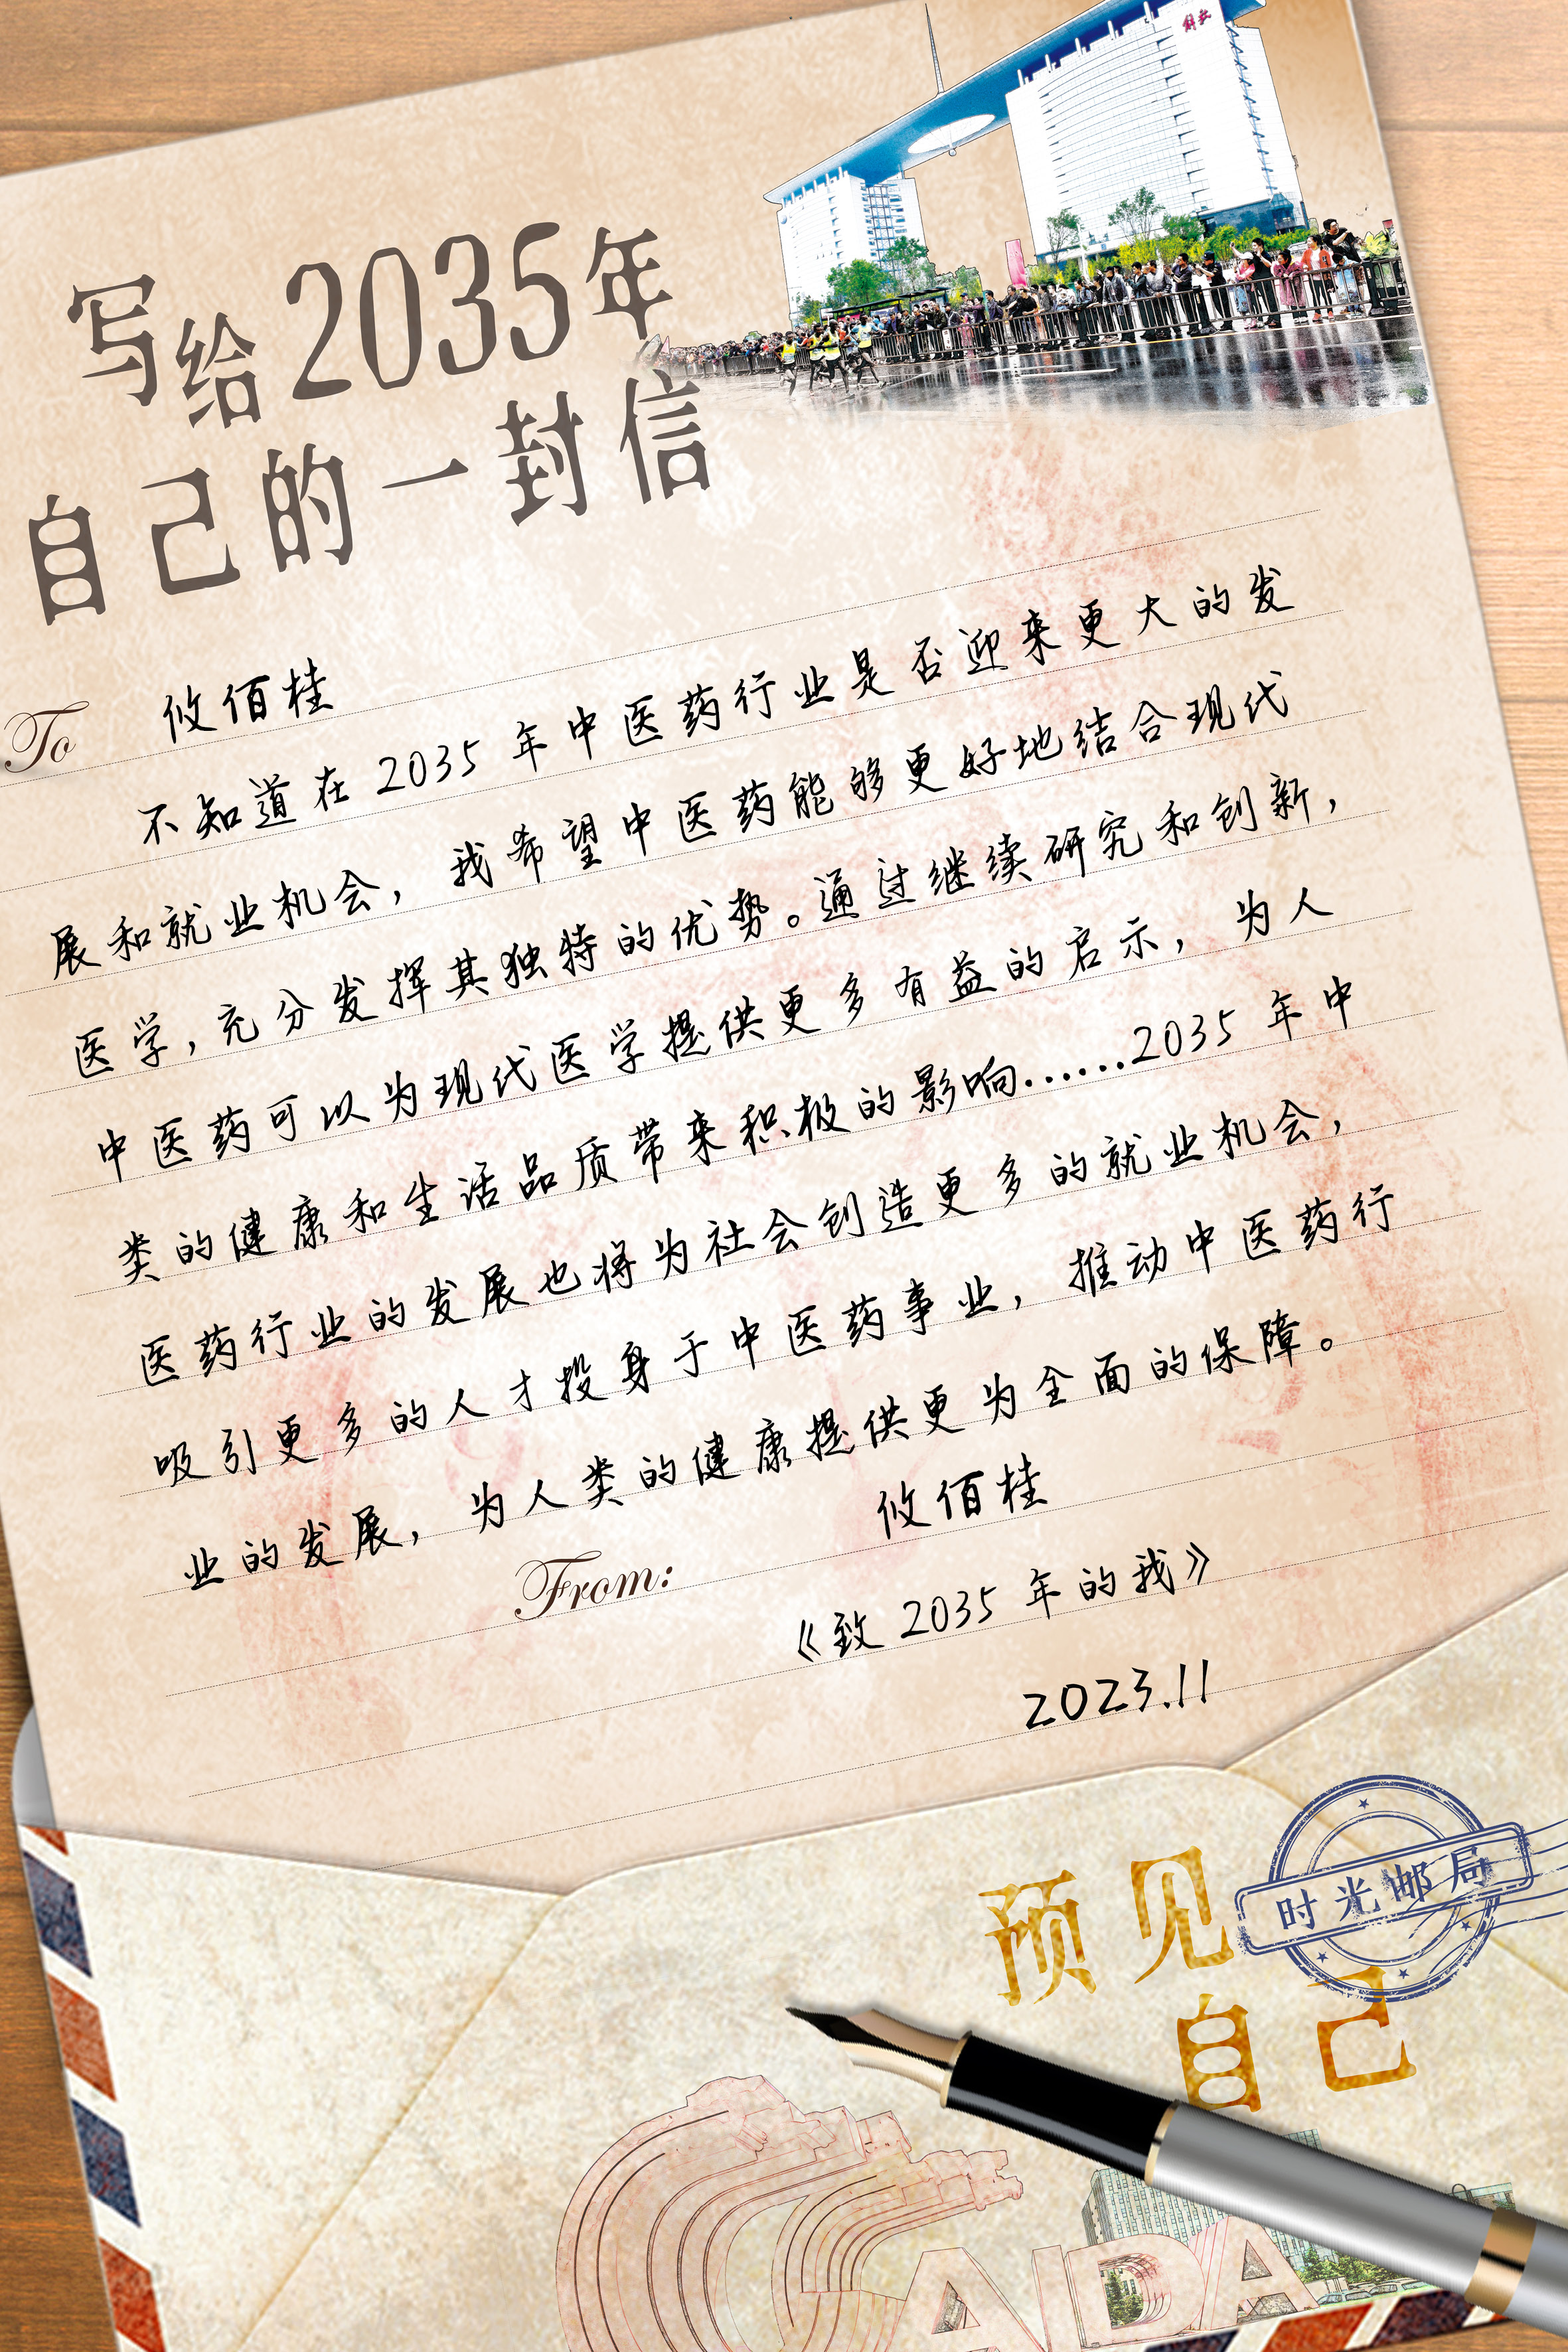 写给2035年
自己的一封信
To 攸佰桂
不知道在2035年中医药行业是否迎来更大的发
展和就业机会，我希望中医药能够更好地结合现代
医学，充分发挥其独特的优势。通过继续研究和创新，
中医药可以为现代医学提供更多有益的启示，为人
类的健康和生活品质带来积极的影响……2035年中
医药行业的发展也将为社会创造更多的就业机会，
吸引更多的人才投身于中医药事业，推动中医药行
业的发展，为人类的健康提供更为全面的保障。
From: 攸佰桂
《致2035年的我》
2023.11
预见
自己
时光邮局